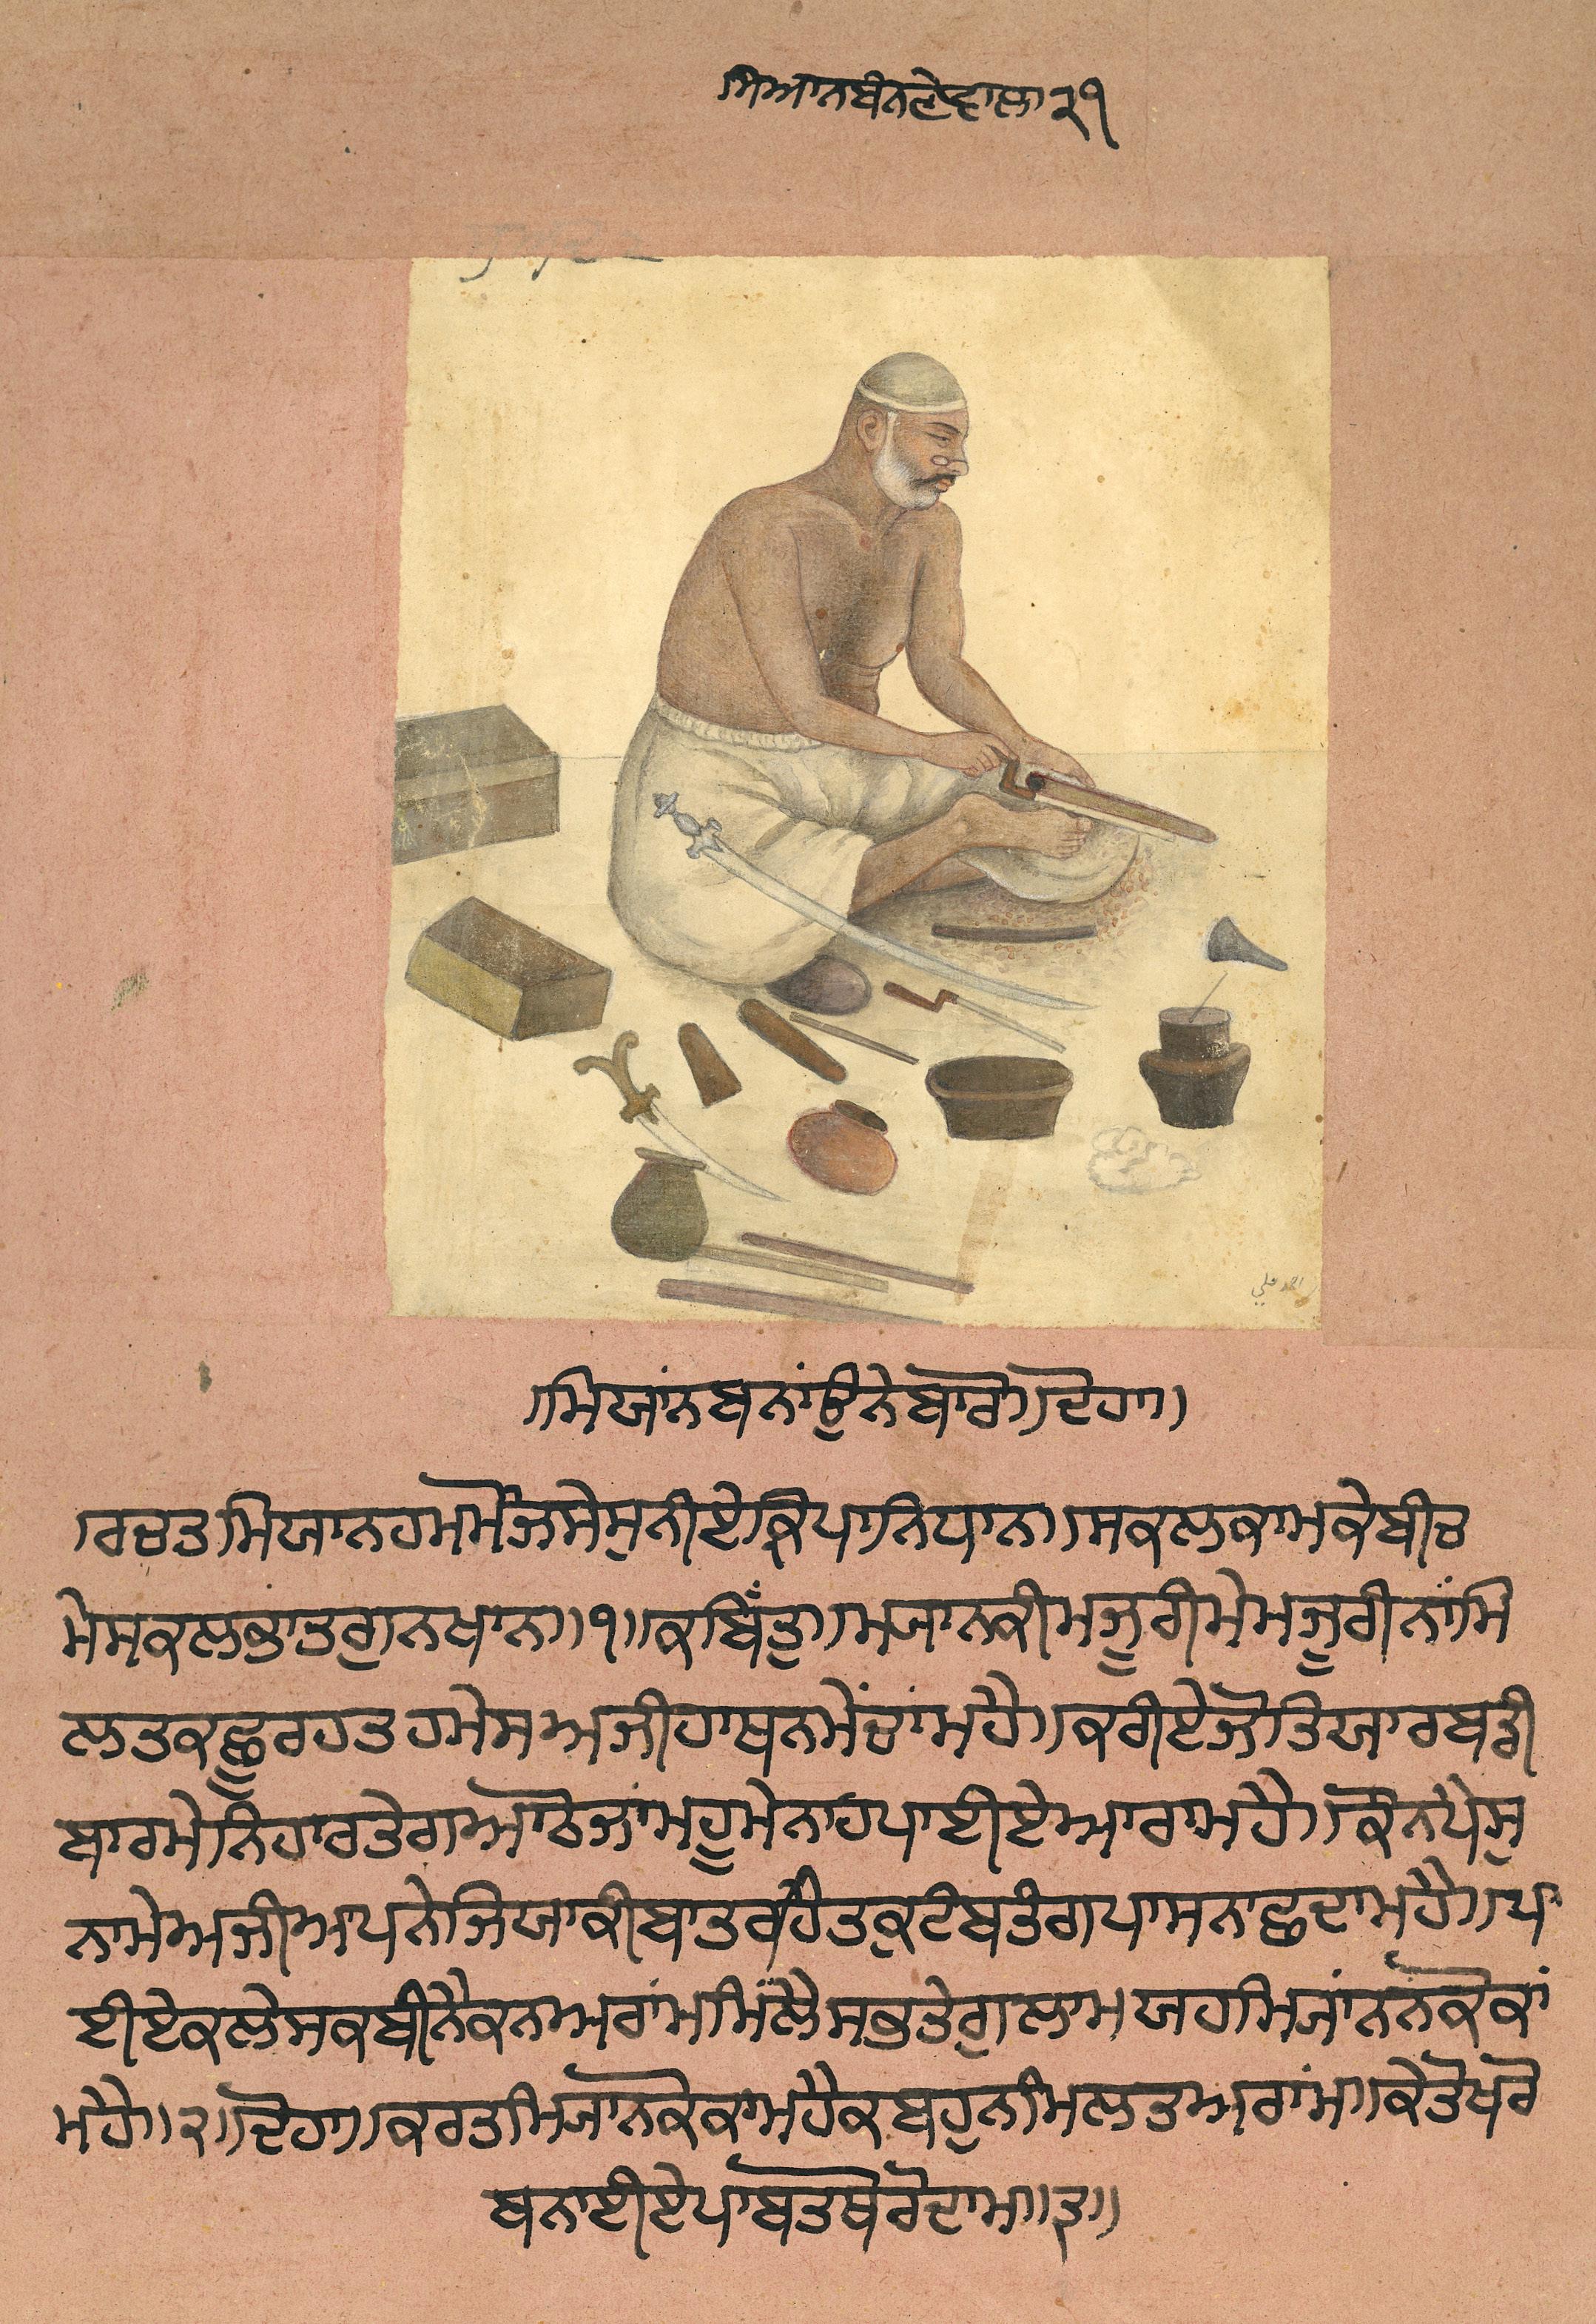 ਮਿਆਨਬੰਨਣੇਵਾਲਾ੨੧
।ਮਿਯਾਂਨਬਨਾਂਉਨੇਬਾਰੋ।।ਦੋਹਾ।।
।ਰਚਤ।ਮਿਯਾਨਹਮਮੌਜਸੇਸੁਨੀਏਕ੍ਰਿਪਾਨਿਧਾਨ।।ਸਕਲਕਾਮਕੇਬੀਚ
ਮੇਸਕਲਭਾਤਗੁਨਖਾਨ।।੧।।ਕਬਿੱਤੁ।।ਮਯਾਨਕੀਮਜੂਰੀਮੇਮਜੂਰੀਨਾਂਮਿ
ਲਤਕਛੂਰਹਤਹਮੇਸਅਜੀਹਾਥਨਮੇਂਚਾਂਮਹੈ।।ਕਰੀਏਜੋਤਿਯਾਰਬਡੀ
ਬਾਰਮੇਨਿਹਾਰਤੇਗਆਠੋਜਾਂਮਹੂਮੇਨਾਹਪਾਈਏਆਰਾਮਹੈ।।ਕੌਨਪੈਸੁ
ਨਾਮੇਅਜੀਅਪਨੇਜਿਯਾਕੀਬਾਤਰਹੈਤਕੁਟੰਬਤੰਗਪਾਸਨਾਛਦਾਮਹੈ।।ਪਾ
ਈਏਕਲੇਸਕਬੀਨੈਕਨਅਰਾਂਮਮਿੰਲੈਸਭਤੇਗੁਲਾਮਯਹਮਿਜਾਂਨਨਕੋਕਾਂ
ਮਹੈ।।੨।।ਦੋਹਾ।।ਕਰਤਮਿਜਾਂਨਕੋਕਾਮਹੈਕਬਹੁਨਮਿਲਤਅਰਾਂਮ।।ਕੇਤੋਖਰੋ
ਬਨਾਈਏਪਾਬਤਥੋਰੋਦਾਮ।।੩।।